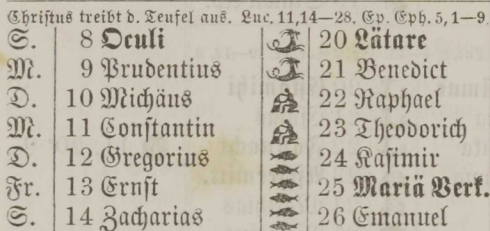 Christus treibt d. Teufel aus. Luc. 11,14—28. Ep. Eph. 5, 1—9.
S. 8 Oculi 20 Lätare
M. 9 Prudentius 21 Benedict
D. 10 Michäus 22 Raphael
M. 11 Constantin 23 Theodorich
D. 12 Gregorius 24 Kasimir
Fr. 13 Ernst 25 Mariä Verk.
S. 14 Zacharias 26 Emanuel